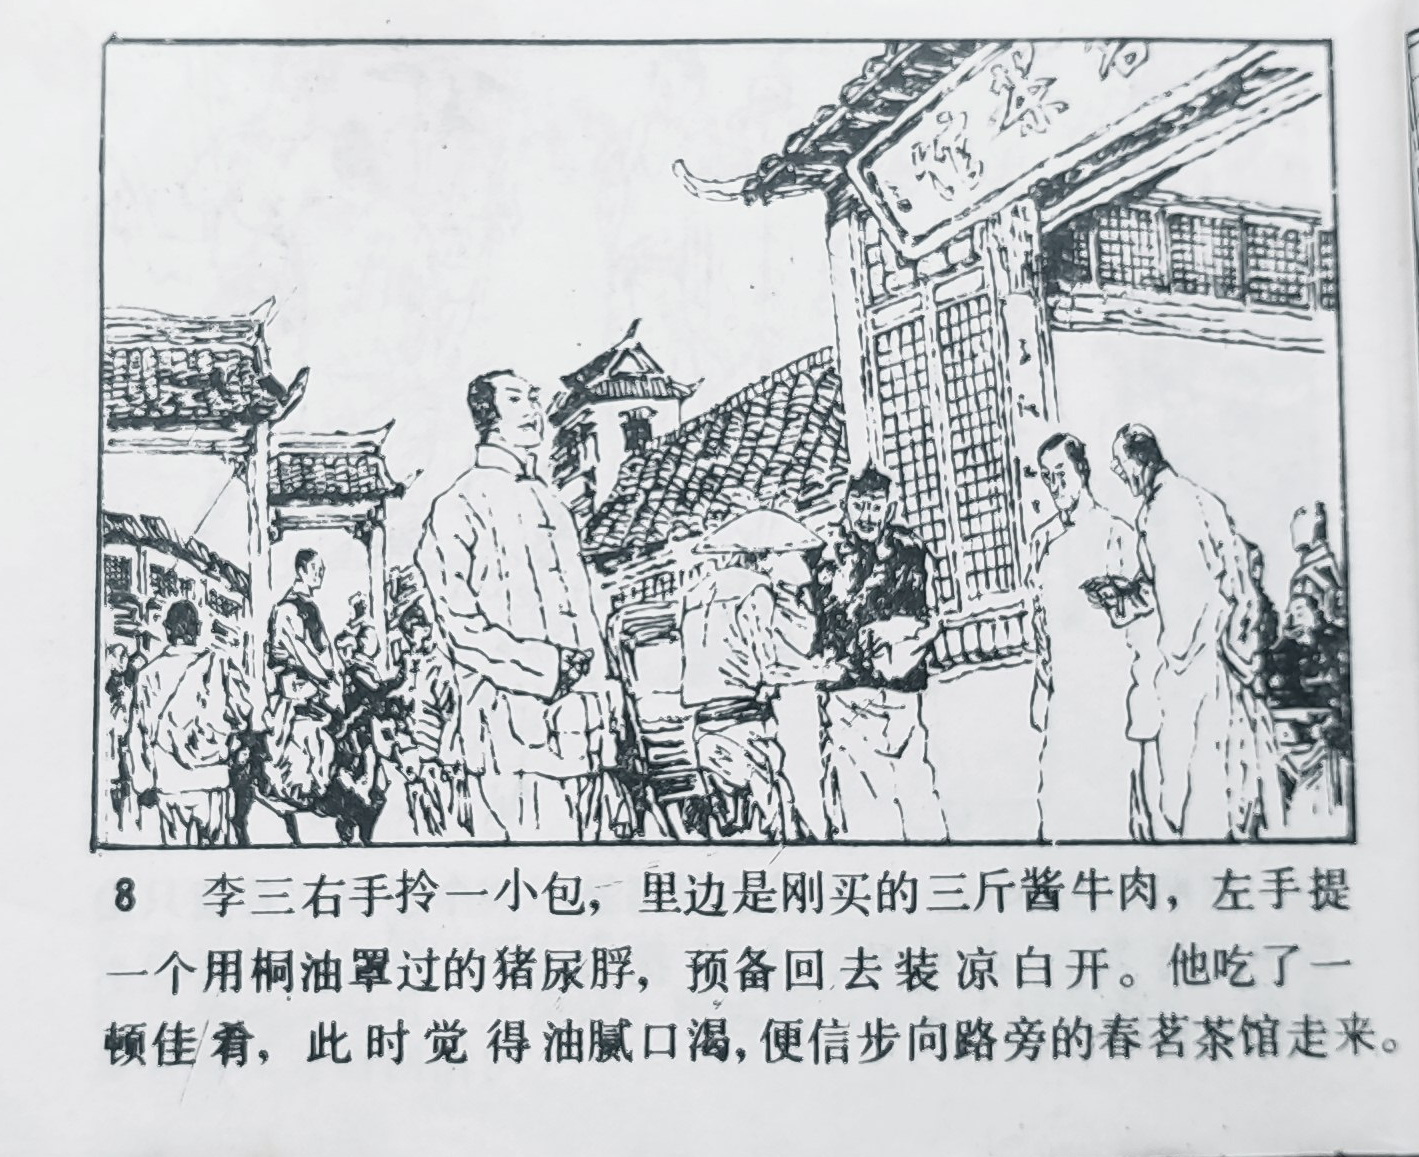 8 李三右手拎一小包，里边是刚买的三斤酱牛肉，左手提
一个用桐油罩过的猪尿脬，预备回去装凉白开。他吃了一
顿佳肴，此时觉得油腻口渴，便信步向路旁的春茗茶馆走来。